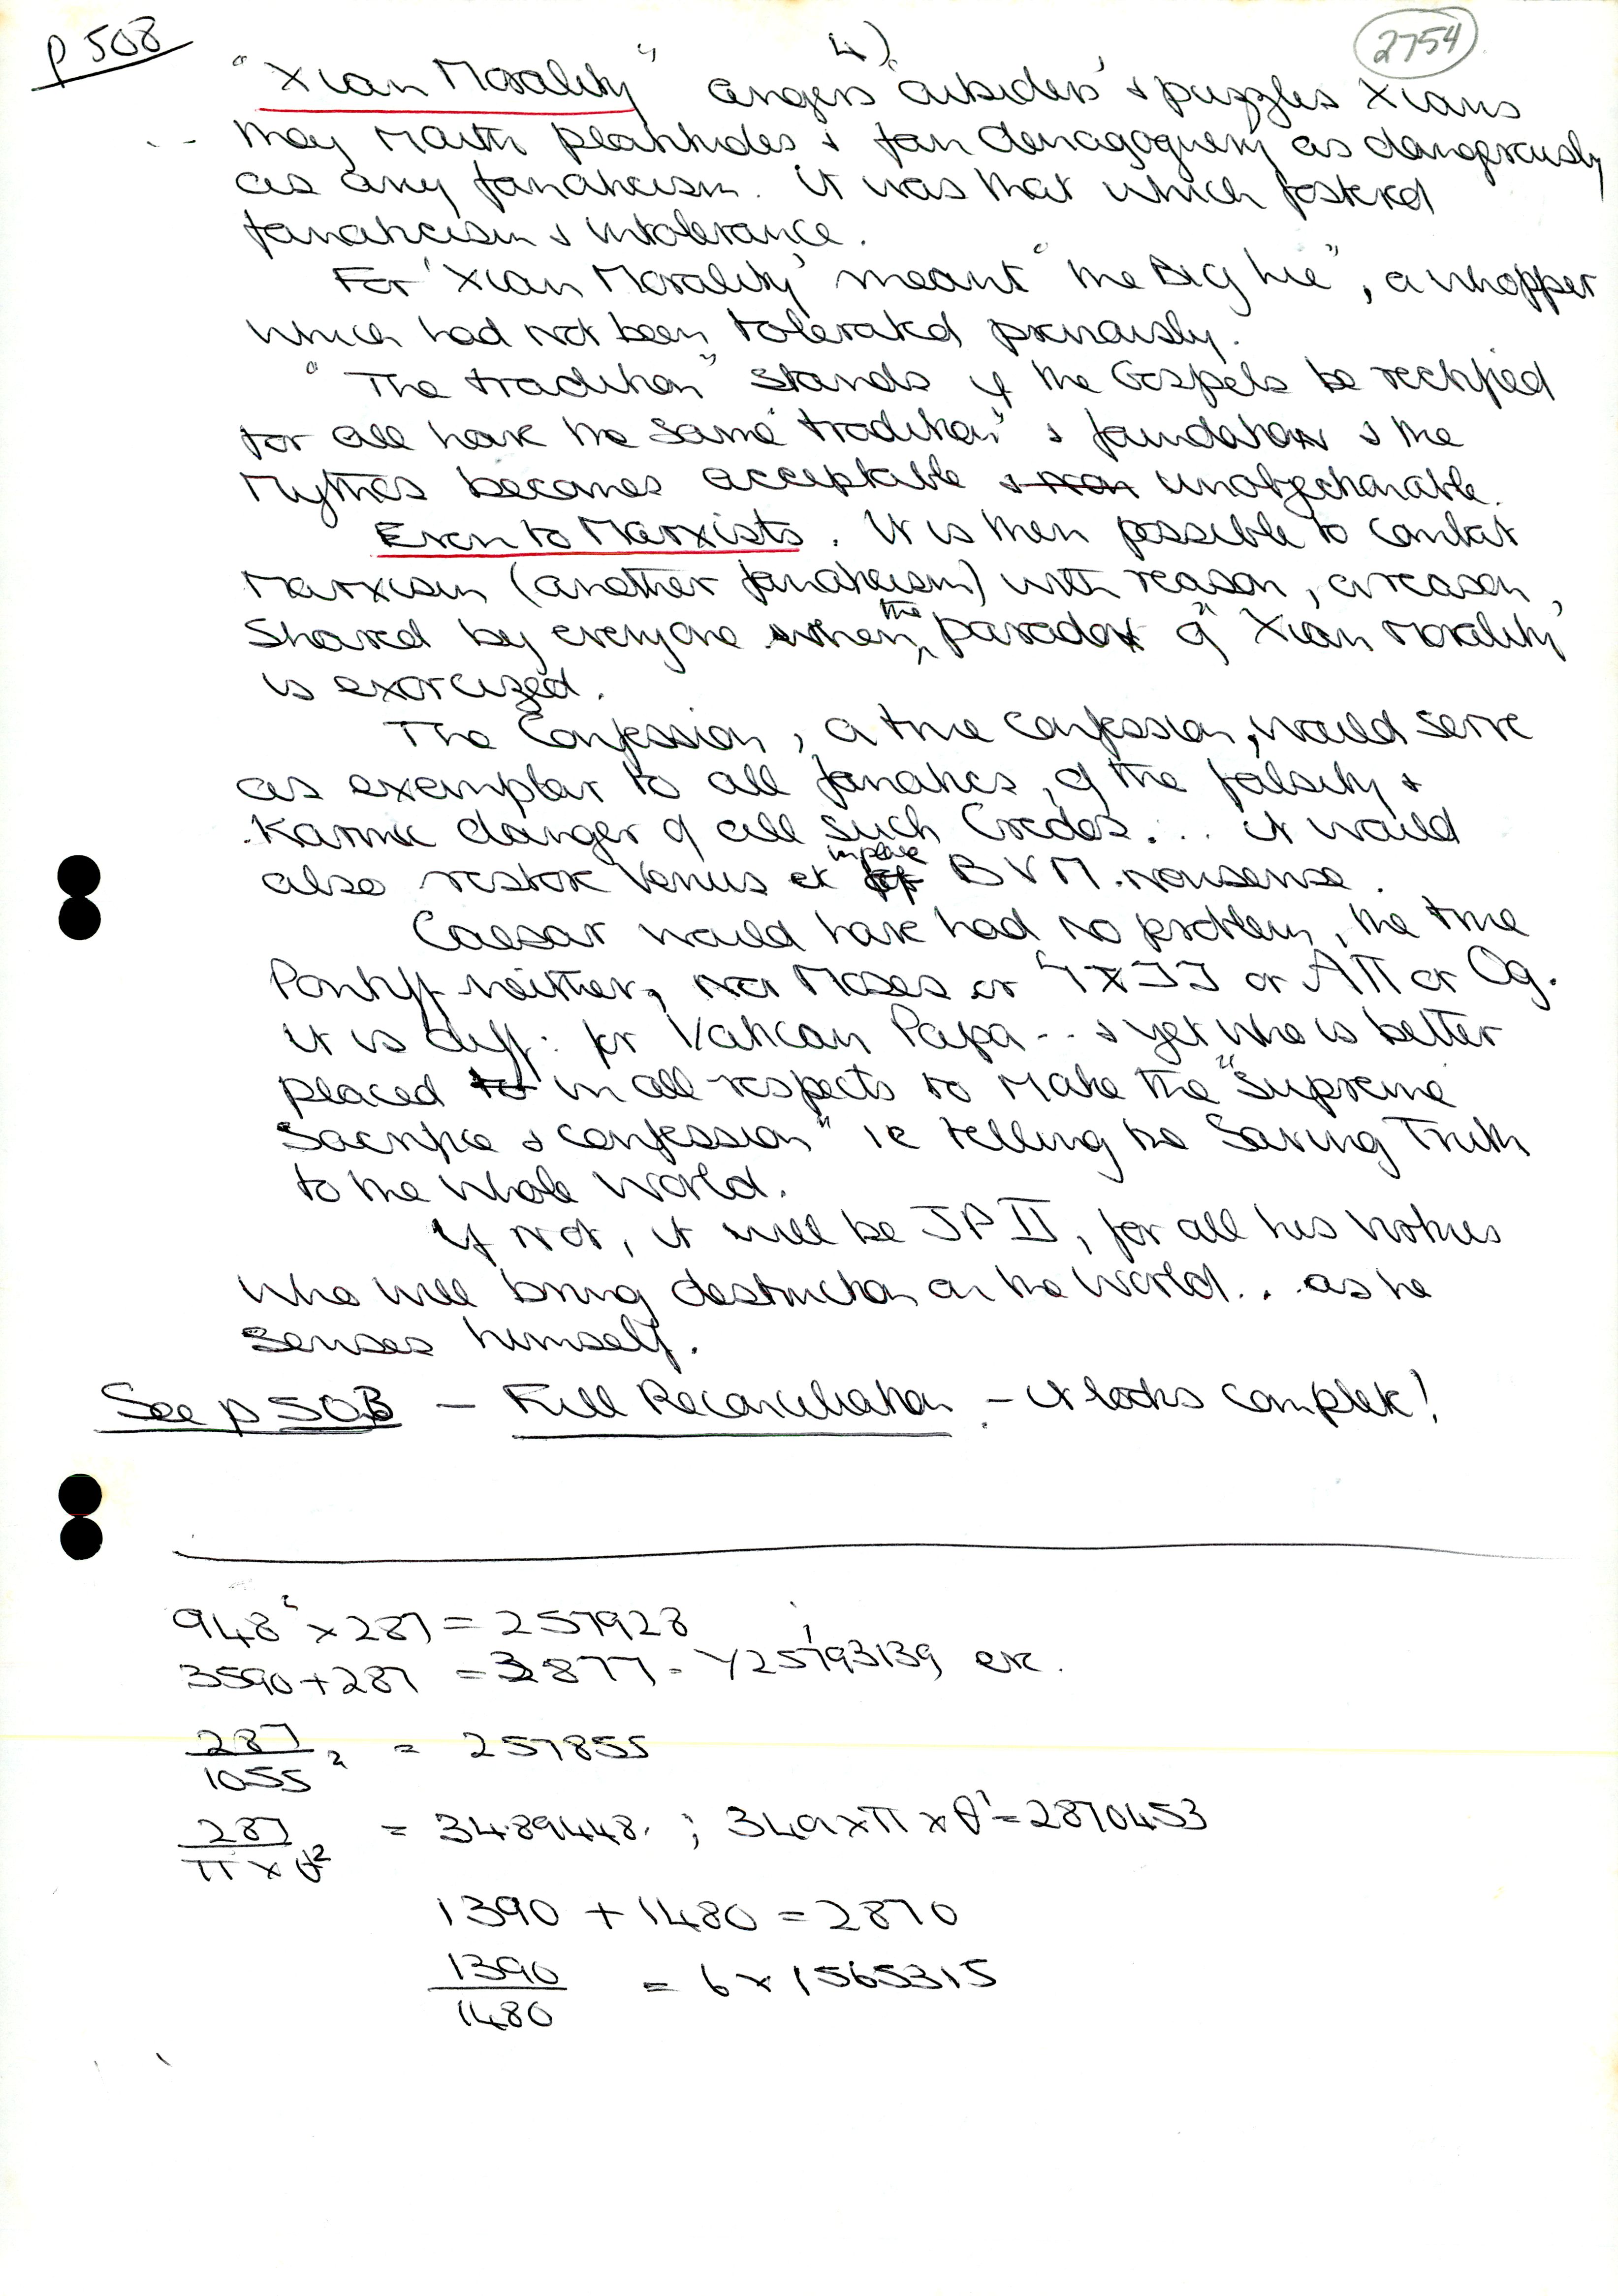 p 508
4)
2754
"Xian Morality" angers 'outsiders' & puzzles Xians
They mouth platitudes & fan demagoguery as dangerously
as any fanaticism. It was that which fostered
fanaticism & intolerance.
For 'Xian Morality' meant "the Big Lie", a whopper
which had not been tolerated previously.
"The tradition" stands if the Gospels be rectified
for all have the same "tradition" & foundation & the
Mythos becomes acceptable & non unobjectionable.
Even to Marxists. It is then possible to combat
Marxism (another fanaticism) with reason, a reason,
shared by everyone when the paradox of "Xian Morality"
is exorcized.
The Confession, a true confession, would serve
as exemplar to all fanatics, of the falsity &
Karmic danger of all such Credos... it would
also restore Venus et in place of BVM. nonsense.
Caesar would have had no problem, the true
Pontiff neither, nor Moses or or ATT or Og.
it is diff: for Vatican Papa -- & yet who is better
placed to in all respects to make the "Supreme
Sacrifice & confession" ie telling the Saving Truth
to the whole world.
If not, it will be JP II, for all his virtues
who will bring destruction on the world... as he
senses himself.
See p 50B — Full Reconciliation — it looks complete!
948² × 287 = 257928
3590 + 287 = 3877 = √25793139, etc.
287/1055² = 257855
287/π × θ² = 34.89448. ; 349 × π × θ' = 2870453
1390 + 1480 = 2870
1390/1480 = 6 × 1565315